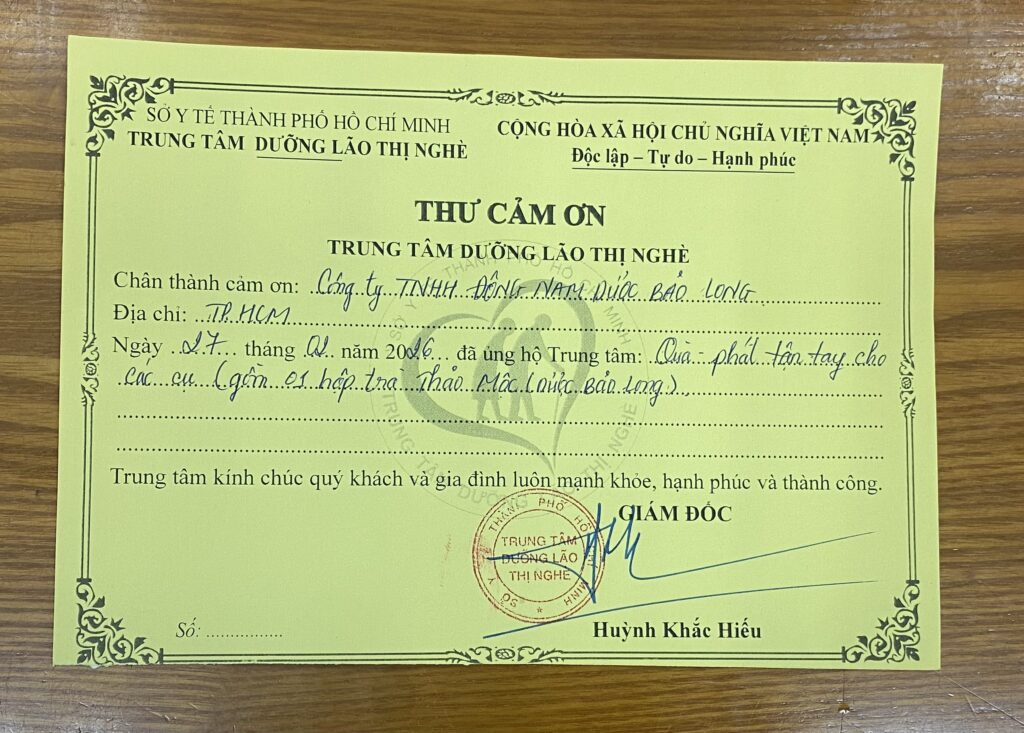 SỞ Y TẾ THÀNH PHỐ HỒ CHÍ MINH
TRUNG TÂM DƯỠNG LÃO THỊ NGHÈ
CỘNG HÒA XÃ HỘI CHỦ NGHĨA VIỆT NAM
Độc lập – Tự do – Hạnh phúc
THƯ CẢM ƠN
TRUNG TÂM DƯỠNG LÃO THỊ NGHÈ
Chân thành cảm ơn: Công ty TNHH ĐÔNG NAM DƯỢC BẢO LONG
Địa chỉ: TP. HCM
Ngày 27 tháng 02 năm 2026 đã ủng hộ Trung tâm: Quà phát tận tay cho
các cụ (gồm 01 hộp trà Thảo Mộc (Dược Bảo Long).
Trung tâm kính chúc quý khách và gia đình luôn mạnh khỏe, hạnh phúc và thành công.
GIÁM ĐỐC
SỞ Y TẾ THÀNH PHỐ HỒ CHÍ MINH
TRUNG TÂM
DƯỠNG LÃO
THỊ NGHÈ
Số: ................
Huỳnh Khắc Hiếu
SỞ Y TẾ THÀNH PHỐ HỒ CHÍ MINH
TRUNG TÂM DƯỠNG LÃO THỊ NGHÈ